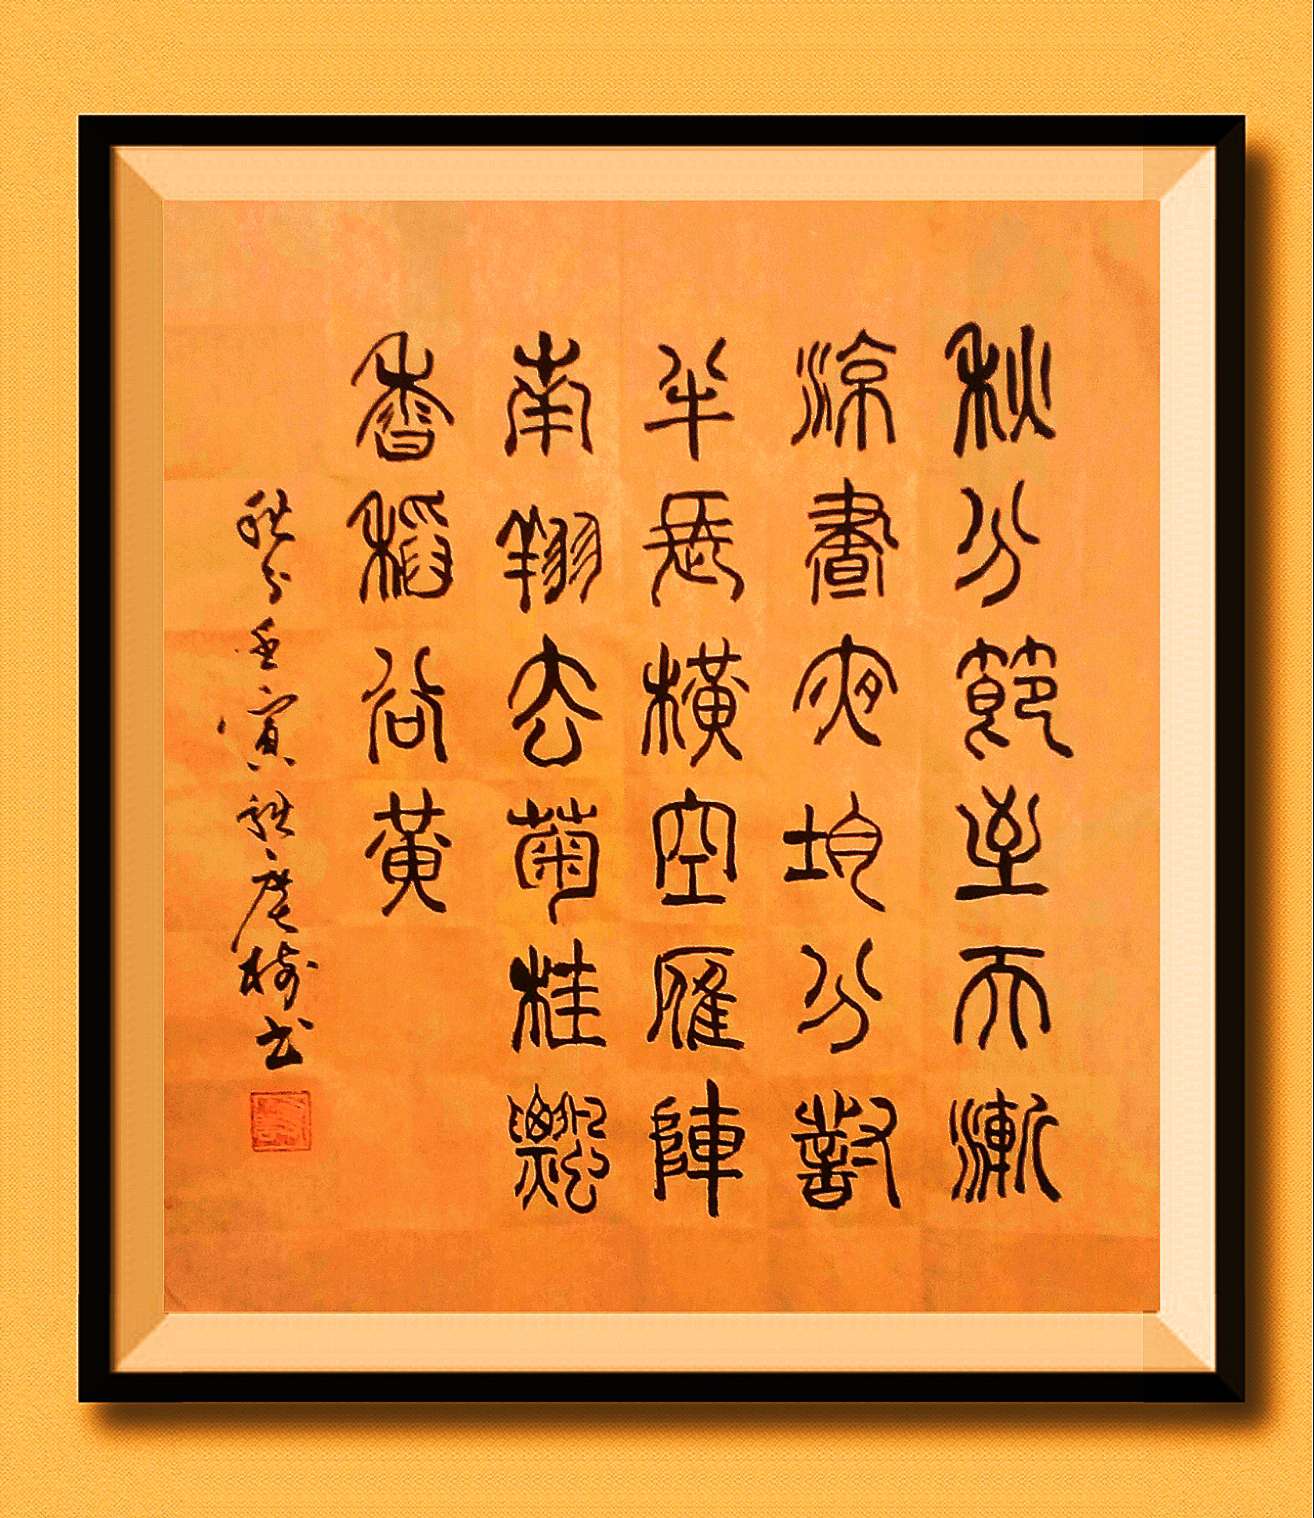 秋分節至天漸
涼晝夜均分對
半長橫空雁陣
南翔去菊桂飄
香稻谷黃
秋分壬寅秋慶樹书